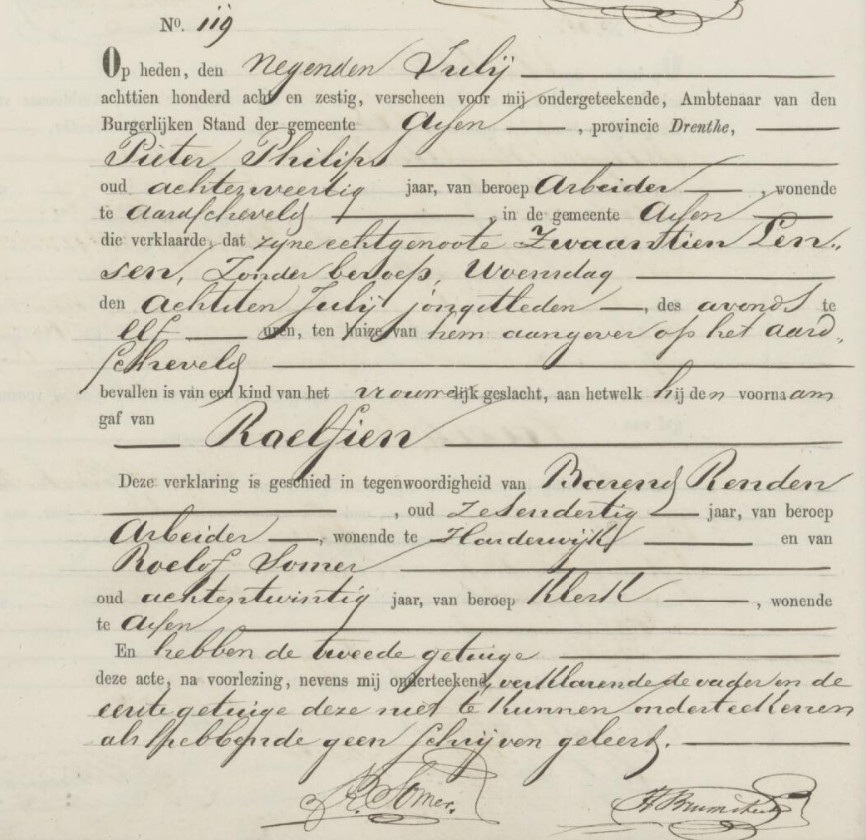 No. 119
Op heden, den negenden Julij
achttien honderd acht en zestig, verscheen voor mij ondergeteekende, Ambtenaar van den
Burgerlijken Stand der gemeente Assen, provincie Drenthe,
Pieter Philips
oud achtenveertig jaar, van beroep Arbeider, wonende
te Aardscheveld, in de gemeente Assen
die verklaarde, dat zijne echtgenoote Zwaantien Len„
sen, Zonder beroep, Woensdag
den achtsten Julij jongstleden, des avonds te
Elf uren, ten huize van hem aangever op het Aard„
scheveld
bevallen is van een kind van het vrouwelijk geslacht, aan hetwelk hij den voornaam
gaf van
Roelfien
Deze verklaring is geschied in tegenwoordigheid van Barend Renden
, oud Zesendertig jaar, van beroep
Arbeider, wonende te Harderwijk en van
Roelof Somer
oud achtentwintig jaar, van beroep Klerk, wonende
te Assen
En hebben de tweede getuige
deze acte, na voorlezing, nevens mij onderteekend, verklarende de vader en de
eerste getuige deze niet te kunnen onderteekenen
als hebbende geen schrijven geleerd.
R. Somer.